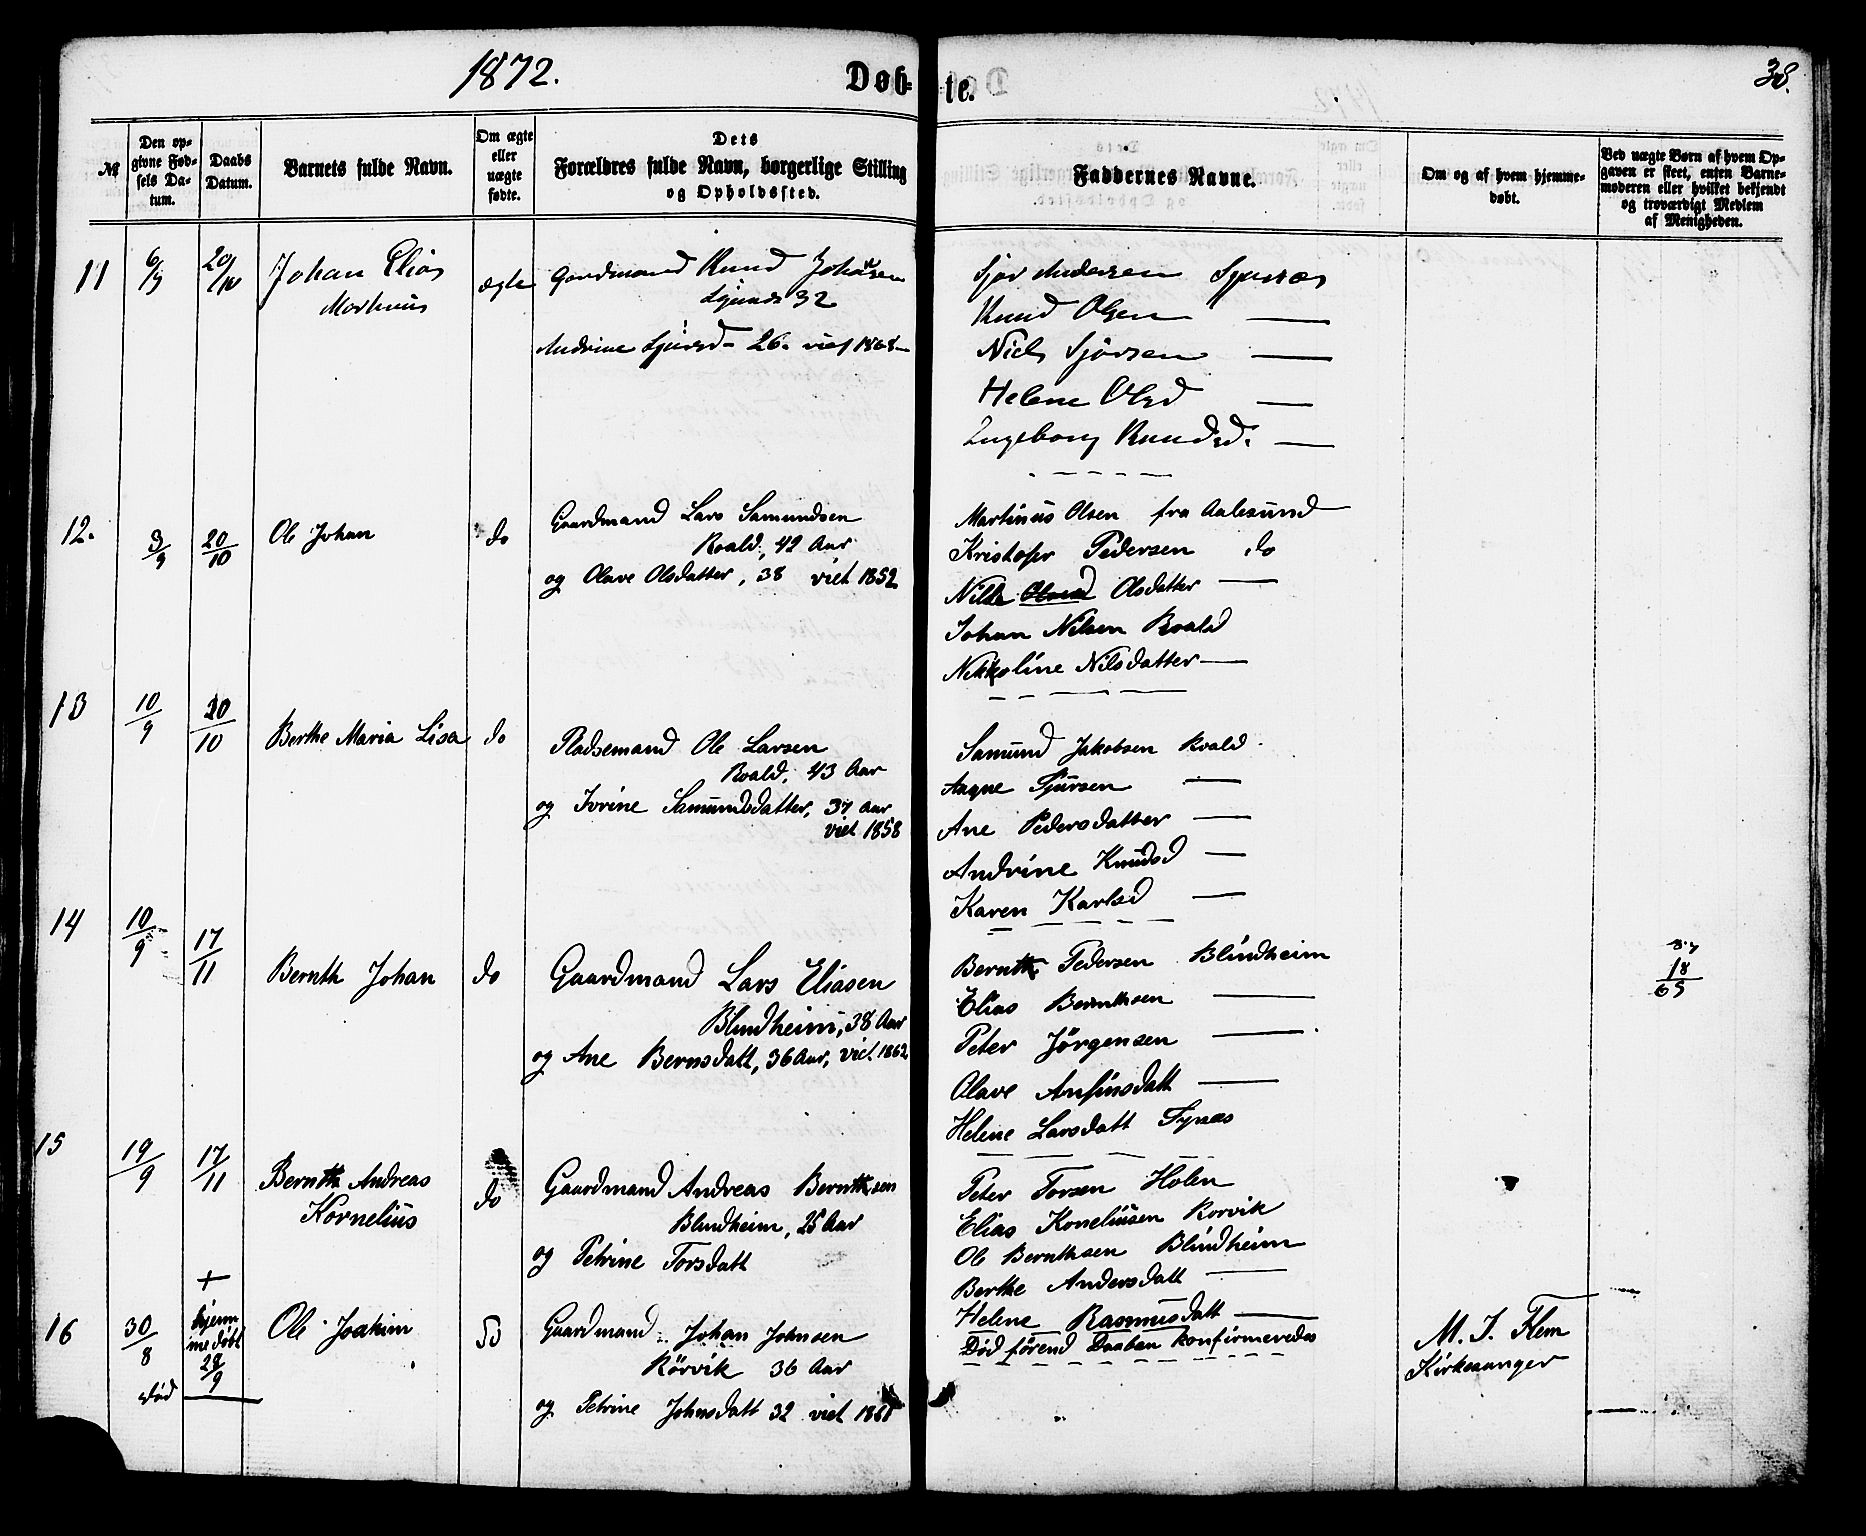 1872.
Døb-
te.
38.
№
Den op-
givne Fød-
sels Da-
tum.
Daabs
Datum.
Barnets fulde Navn.
Om ægte
eller
uægte
fødte.
Dets
Forældres fulde Navn, borgerlige Stilling
og Opholdssted.
Faddernes Navne.
Om og af hvem hjemme-
døbt.
Ved uægte Børn af hvem Op-
gaven er skeet, enten Barne-
moderen eller hvilket bekjendt
og troværdigt Medlem
af Menigheden.
11
6/9
20/10
Johan Elias
ægte
Gardmand Knud Johnsen
32
Andrine 26. vief 1868
Sjør Andersen
Knud Olsen —
Niels Sjørsen —
Helene Olsd —
Ingeborg Knudsd. —
12.
3/9
20/10
Ole Johan
do
Gaardmand Lars Samundsen
Roald, 42 Aar
og Olave Olsdatter, 38 viet 1852
Martinus Olsen fra Aalesund
Kristofer Pedersen do
Olsdatter —
Johan Nilsen Roald
Nikkoline Nilsdatter —
13
10/9
20/10
Berthe Maria Lisa
do
Pladsemand Ole Larsen
Roald, 43 Aar
og Ivrine Samundsdatter, 37 Aar
viet 1858
Samund Jakobsen Roald
Aagne Sjursen —
Ane Pedersdatter —
Andrine Knudsd —
Karen Karlsd —
14
10/9
17/11
Bernth Johan
do
Gaardmand Lars Eliasen
Blindheim, 38 Aar
og Ane Bernsdatt, 36 Aar, viet 1862
Bernth Pedersen Blindheim
Elias Bernthsen —
Peter Jørgensen —
Olave Anfinsdatt —
Helene Larsdatt Synæs
87
18
65
15
19/9
17/11
Bernth Andreas
Kornelius
do
Gaardmand Andreas Bernthsen
Blindheim, 25 Aar
og Petrine Torsdatt
Peter Torsen Holen
Elias Koneliusen Rorvik
Ole Bernthsen Blindheim
Berthe Andersdatt —
Helene Rasmusdatt —
16
30/8
død
+
hjem
medøbt
28/9
Ole Joakim
do
Gaardmand Johan Johnsen
Rörvik 36 Aar
og Petrine Johnsdatt 32 viet 1861
Død førend Daaben konfirmeredes
M. J. Flem
Kirkesanger